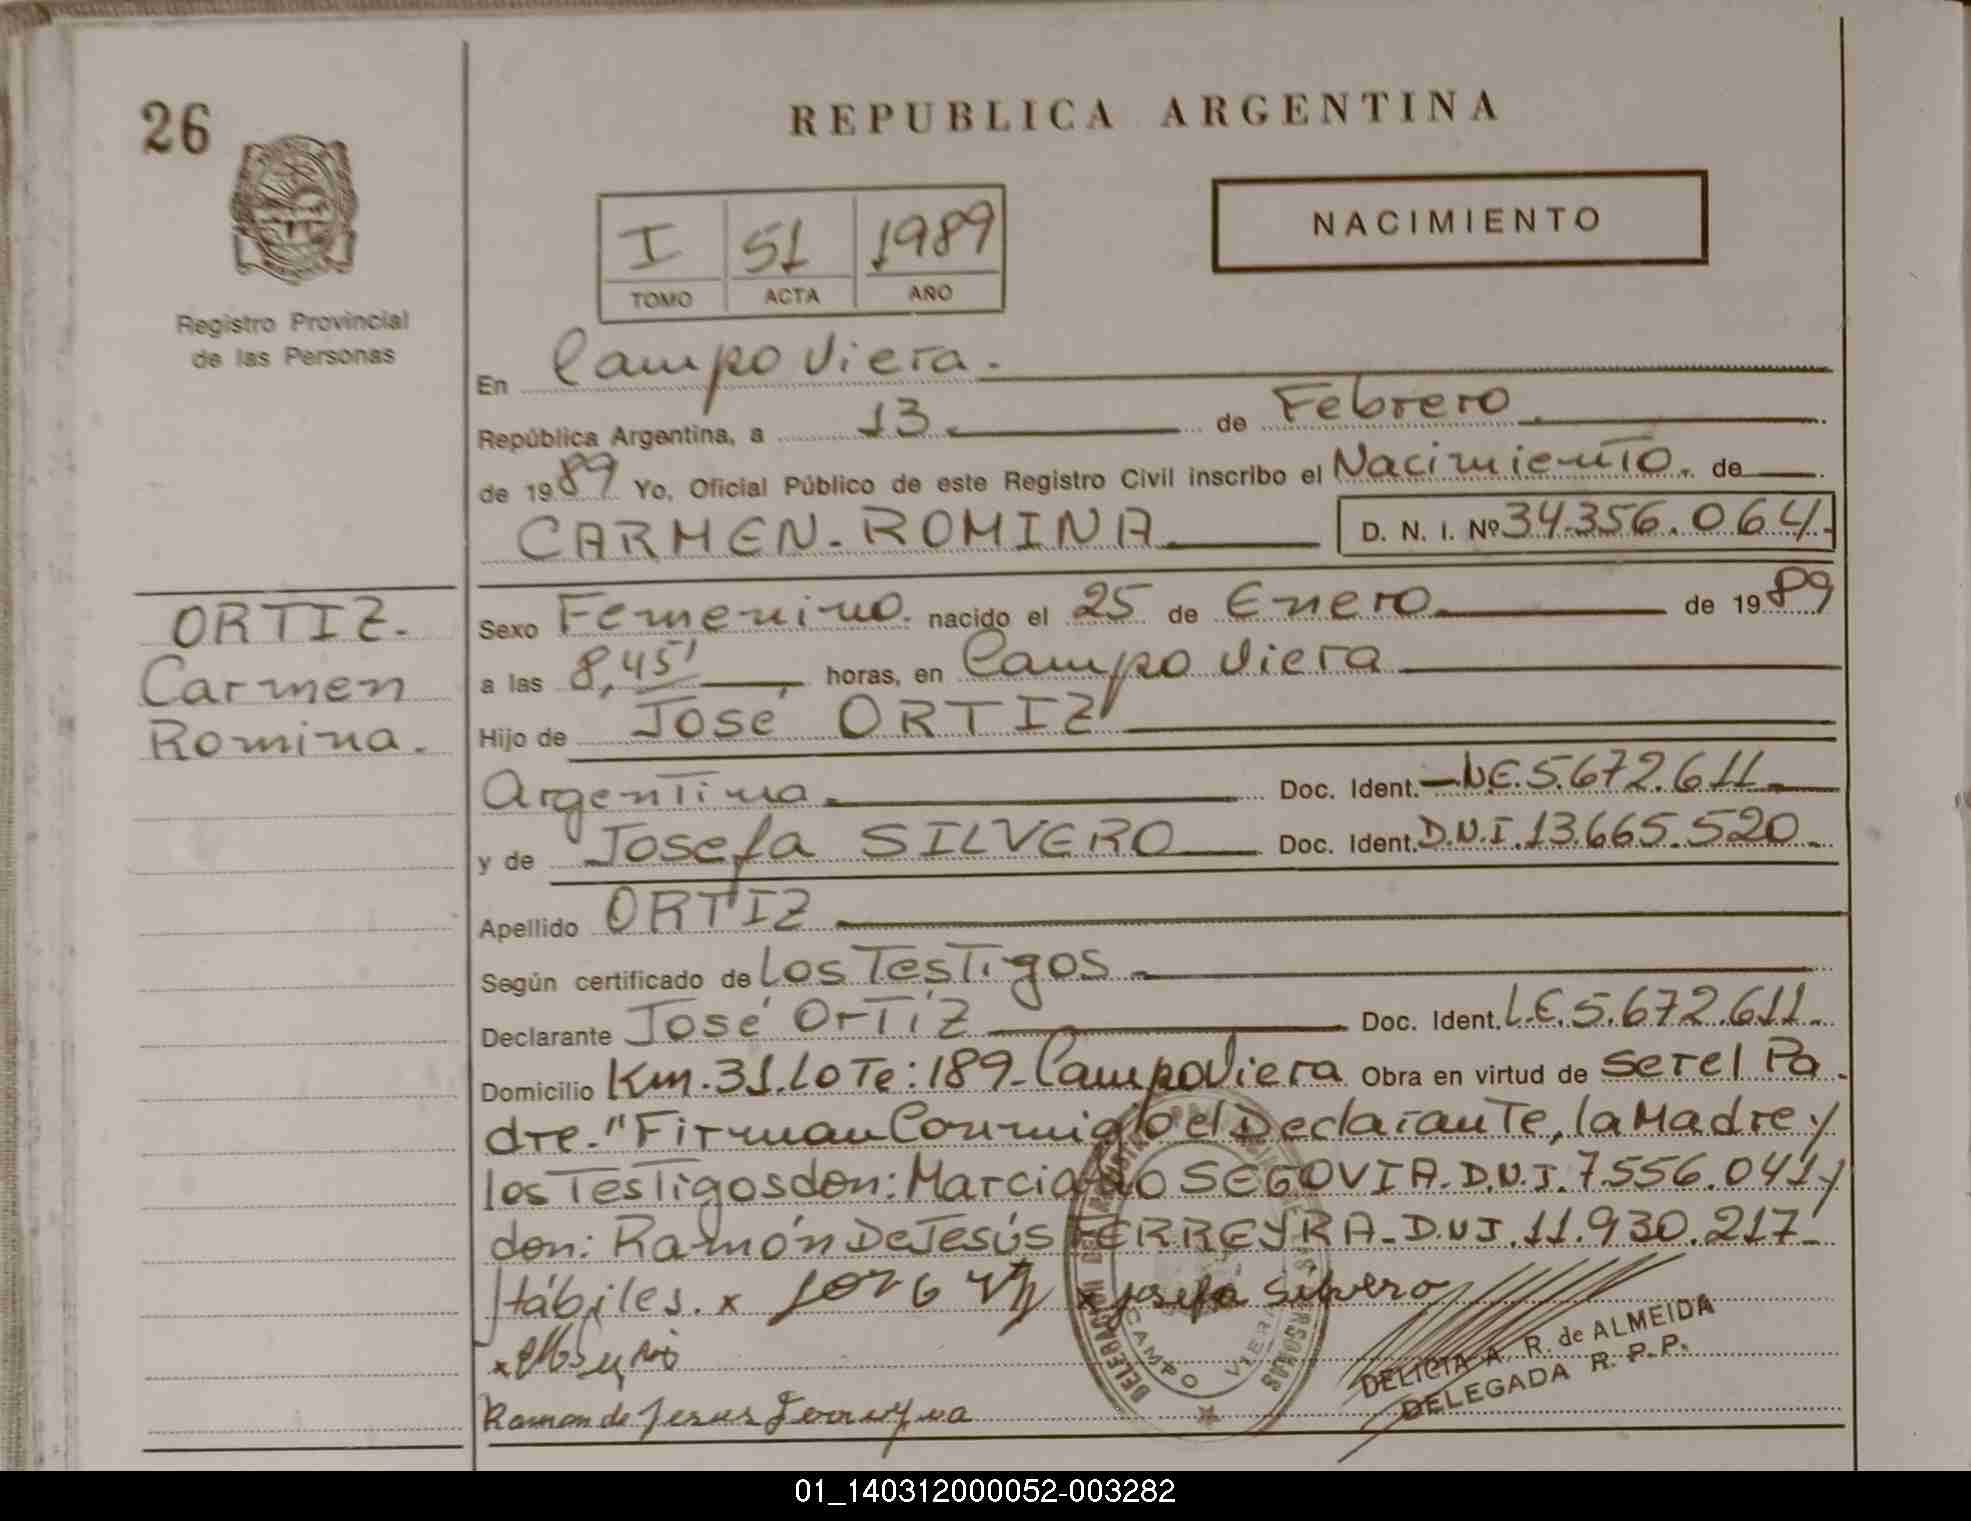 26
REPUBLICA ARGENTINA
NACIMIENTO
I 51 1989
TOMO ACTA AÑO
Registro Provincial
de las Personas
En Campo Viera.
República Argentina, a 13 de Febrero
de 1989 Yo, Oficial Público de este Registro Civil inscribo el Nacimiento. de
CARMEN. ROMINA D. N. I. Nº 34.356.064.
ORTIZ.
Carmen
Romina.
Sexo Femenino. nacido el 25 de Enero de 1989
a las 8,45' horas, en Campo Viera
Hijo de José ORTIZ
Argentina Doc. Ident. 5.672.611
y de Josefa SILVERO Doc. Ident. D.N.I. 13.665.520
Apellido ORTIZ
Según certificado de Los Testigos
Declarante José Ortíz Doc. Ident. L.E. 5.672.611
Domicilio Km. 31. Lote: 189. Campo Viera Obra en virtud de ser el Pa
dre. "Firman Conmigo el Declarante, la Madre y
los Testigos don: Marciano SEGOVIA. D.N.I. 7.556.041 y
don: Ramón De Jesús FERREYRA. D.N.I. 11.930.217
Hábiles. x x Josefa Silvero
x
Ramon de Jesus Ferreyra
DELICIA A. R. de ALMEIDA
DELEGADA R. P. P.
CAMPO VIERA
01_140312000052-003282